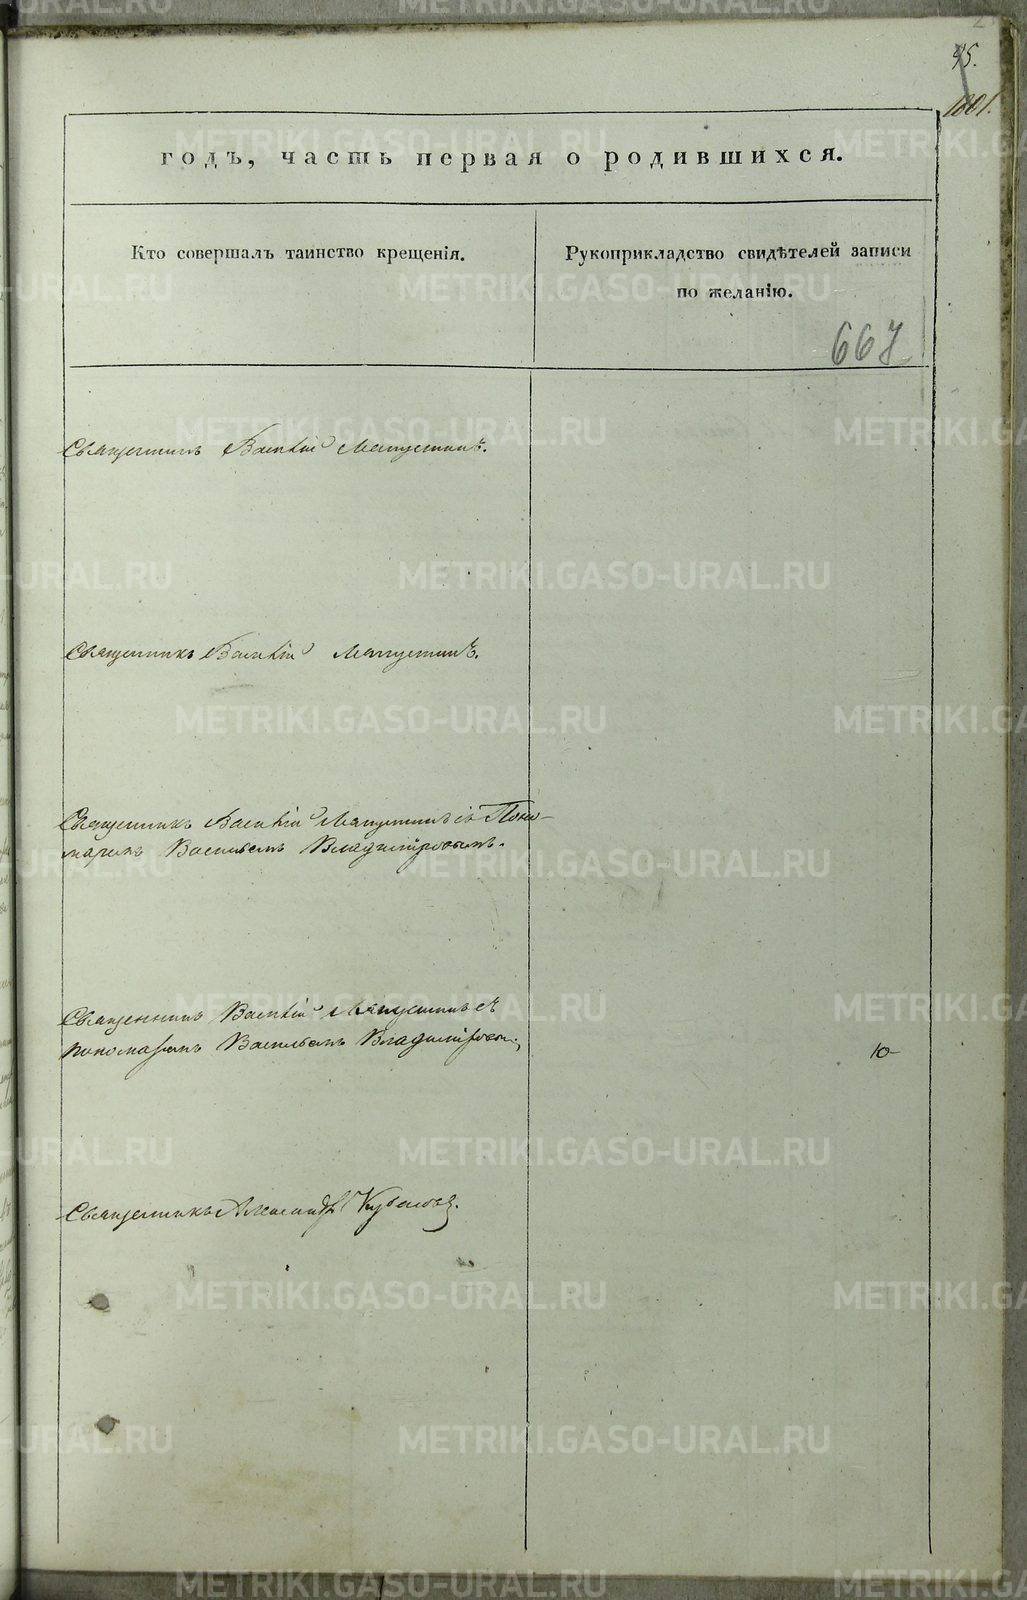 45.
1001.
годъ, часть первая о родившихся.
Кто совершалъ таинство крещенія.
Рукоприкладство свидѣтелей записи
по желанію.
667
Священникъ Василій
Священникъ Василій
Священникъ Василій съ Поно-
маремъ Васильемъ Владиміровымъ.
Священникъ Василій съ
пономаремъ Васильемъ Владиміровы
Ю
Священникъ Александръ
METRIKI.GASO-URAL.RU